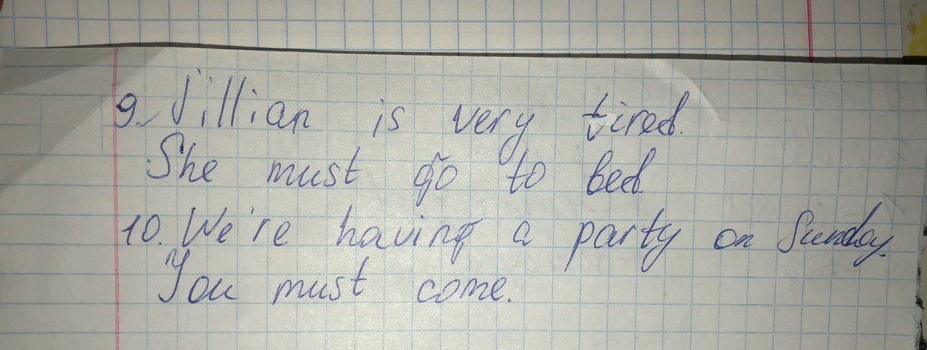 9. Jillian is very tired.
She must go to bed
10. We're having a party on Sunday.
You must come.